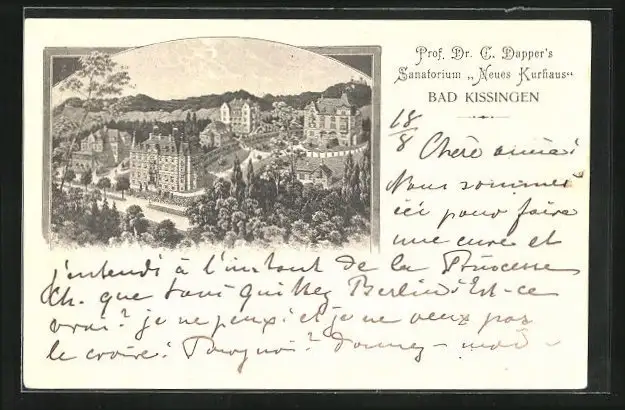 Prof. Dr. C. Dapper's
Sanatorium „Neues Kurhaus“
BAD KISSINGEN
18/8
Chère amie!
Nous sommes
ici pour faire
une cure et
j'entends à l'instant de la Princesse
Ch. que vous quittez Berlin! Est-ce
vrai? je ne peux et je ne veux pas
le croire! Pourquoi? Donnez-moi-